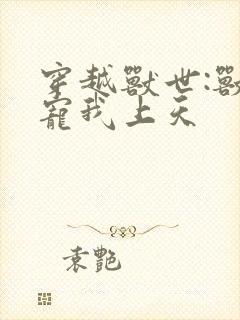 穿越獸世:獸
寵我上天
袁艷